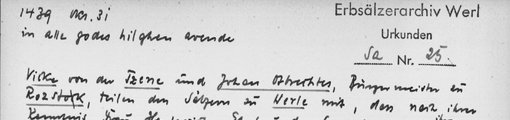 1439 Okt. 31
Erbsälzerarchiv Werl
in alle godes hilghen avende
Urkunden
Sa Nr. 25.
Vicke von der Tzene und Johan Ostrechtes, Bürgermeister zu
Rozstock, teilen den Sälzern zu Werle mit, dass nach ihrer
Kenntnis Frau